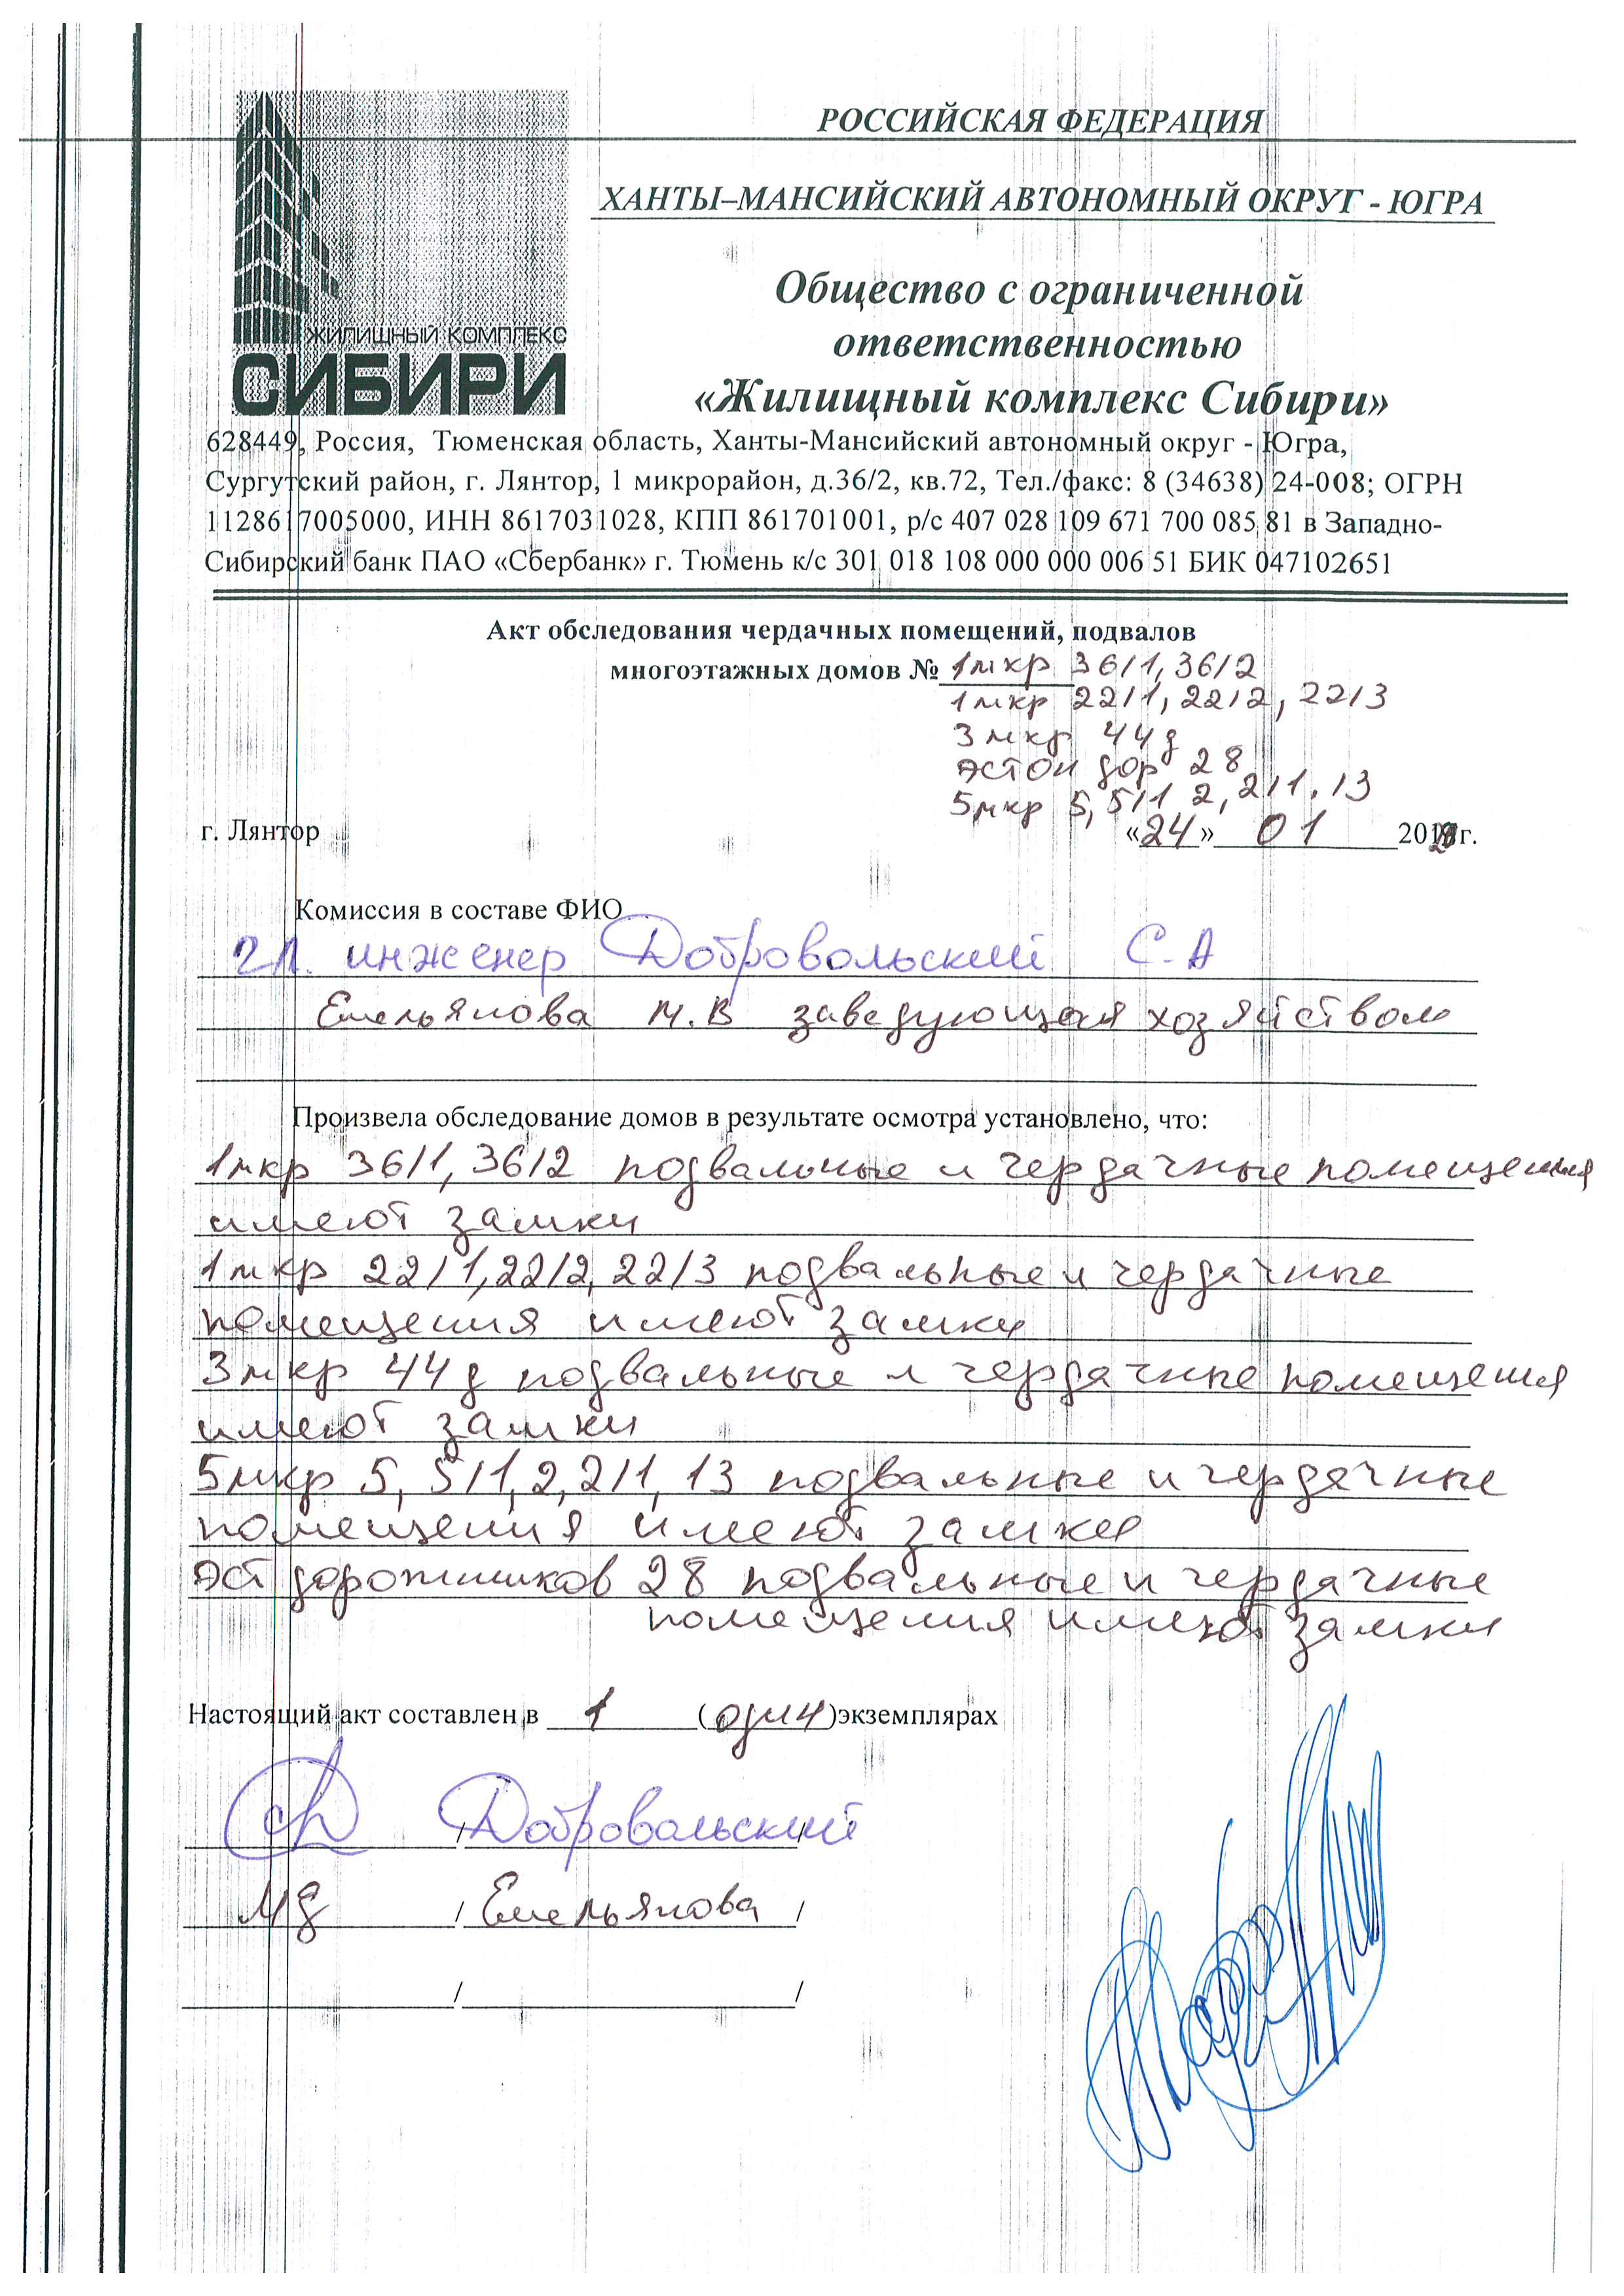 РОССИЙСКАЯ ФЕДЕРАЦИЯ
ХАНТЫ–МАНСИЙСКИЙ АВТОНОМНЫЙ ОКРУГ - ЮГРА
ЖИЛИЩНЫЙ КОМПЛЕКС
СИБИРИ
Общество с ограниченной
ответственностью
«Жилищный комплекс Сибири»
628449, Россия, Тюменская область, Ханты-Мансийский автономный округ - Югра,
Сургутский район, г. Лянтор, 1 микрорайон, д.36/2, кв.72, Тел./факс: 8 (34638) 24-008; ОГРН
1128617005000, ИНН 8617031028, КПП 861701001, р/с 407 028 109 671 700 085 81 в Западно-
Сибирский банк ПАО «Сбербанк» г. Тюмень к/с 301 018 108 000 000 006 51 БИК 047102651
Акт обследования чердачных помещений, подвалов
многоэтажных домов № 1мкр 36/1, 36/2
1мкр 22/1, 22/2, 22/3
3мкр 44д
эстон дор 28
5мкр 5, 5/1 2, 2/1. 13
г. Лянтор «24» 01 201 г.
Комиссия в составе ФИО
гл. инженер Добровольский С.А
Емельянова М.В заведующая хозяйством
Произвела обследование домов в результате осмотра установлено, что:
1мкр 36/1, 36/2 подвальные и чердачные помещения
имеют замки
1мкр 22/1, 22/2, 22/3 подвальные и чердачные
помещения имеют замки
3мкр 44д подвальные и чердачные помещения
имеют замки
5мкр 5, 5/1, 2, 2/1, 13 подвальные и чердачные
помещения имеют замки
эст дорожников 28 подвальные и чердачные
помещения имеют замки
Настоящий акт составлен в 1 (один)экземплярах
/ Добровольский /
/ Емельянова /
/ /